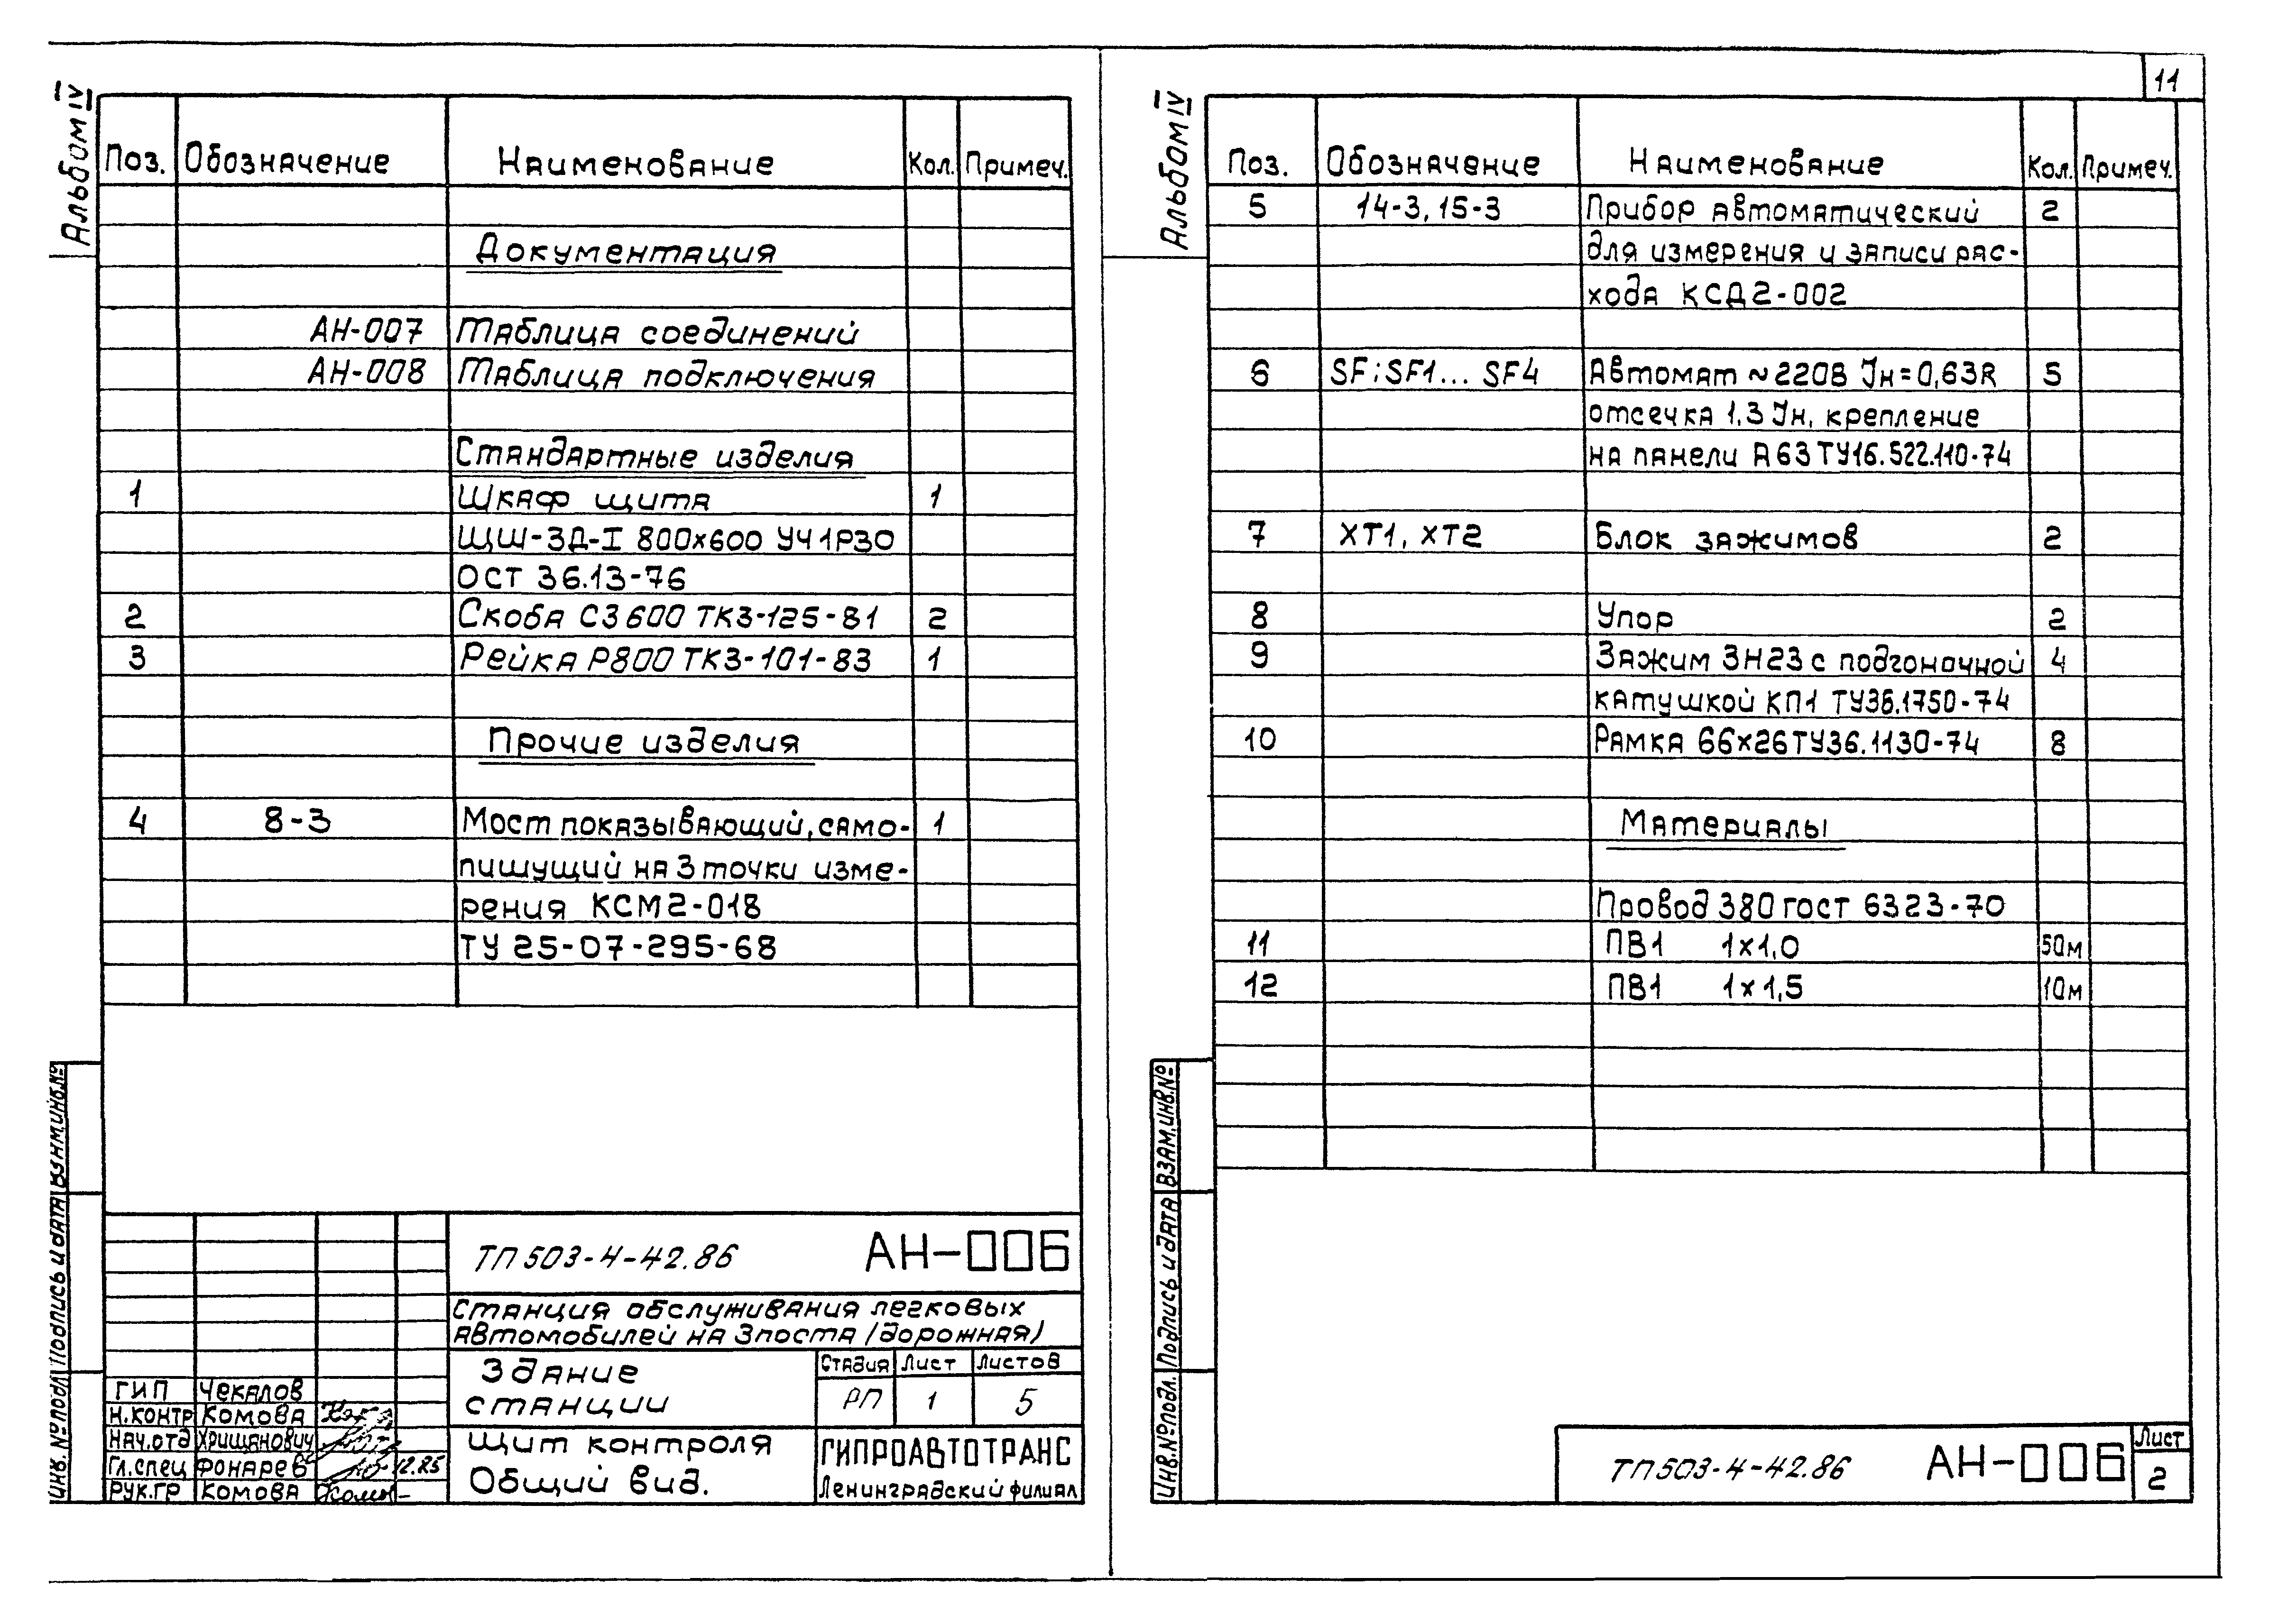 11
Альбом IV
Поз. Обозначение Наименование Кол. Примеч.
Документация
АН-007 Таблица соединений
АН-008 Таблица подключения
Стандартные изделия
1 Шкаф щита 1
ЩШ-ЗД-I 800х600 УЧ1Р30
ОСТ 36.13-76
2 Скоба С3600 ТК3-125-81 2
3 Рейка Р800 ТК3-101-83 1
Прочие изделия
4 8-3 Мост показывающий, само- 1
пишущий на 3 точки изме-
рения КСМ2-018
ТУ 25-07-295-68
ТП 503-4-42.86 АН-006
Станция обслуживания легковых
автомобилей на 3 поста (дорожная)
Здание
станции
Стадия Лист Листов
РП 1 5
Щит контроля
Общий вид.
ГИПРОАВТОТРАНС
Ленинградский филиал
ГИП Чекалов
Н.контр Комова
Нач.отд Хрищанович
Гл.спец Фонарев 12.85
Рук.гр Комова
Инв.№ подл. Подпись и дата Взам.инв.№
Альбом IV
Поз. Обозначение Наименование Кол. Примеч.
5 14-3, 15-3 Прибор автоматический 2
для измерения и записи рас-
хода КСД2-002
6 SF; SF1... SF4 Автомат ~220В Iн=0,63R 5
отсечка 1,3 Iн, крепление
на панели А63 ТУ16.522.110-74
7 ХТ1, ХТ2 Блок зажимов 2
8 Упор 2
9 Зажим ЗН23 с подгоночной 4
катушкой КП1 ТУ36.1750-74
10 Рамка 66х26 ТУ36.1130-74 8
Материалы
Провод 380 ГОСТ 6323-70
11 ПВ1 1х1,0 50м
12 ПВ1 1х1,5 10м
Инв.№ подл. Подпись и дата Взам.инв.№
ТП 503-4-42.86 АН-006
Лист
2